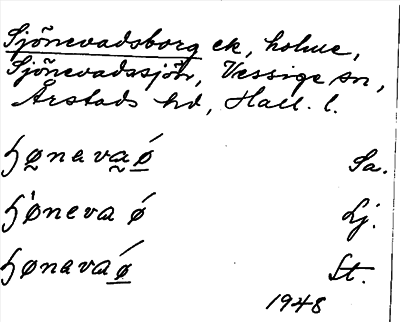 Sjönevadsborg ek, holme,
Sjönevadssjön, Vessige sn,
Årstads hd, Hall. l.
ɧø̰neva̰ǿ̲ Sa.
ɧǿneva ǿ Lj.
ɧønevaǿ̲ St.
1948